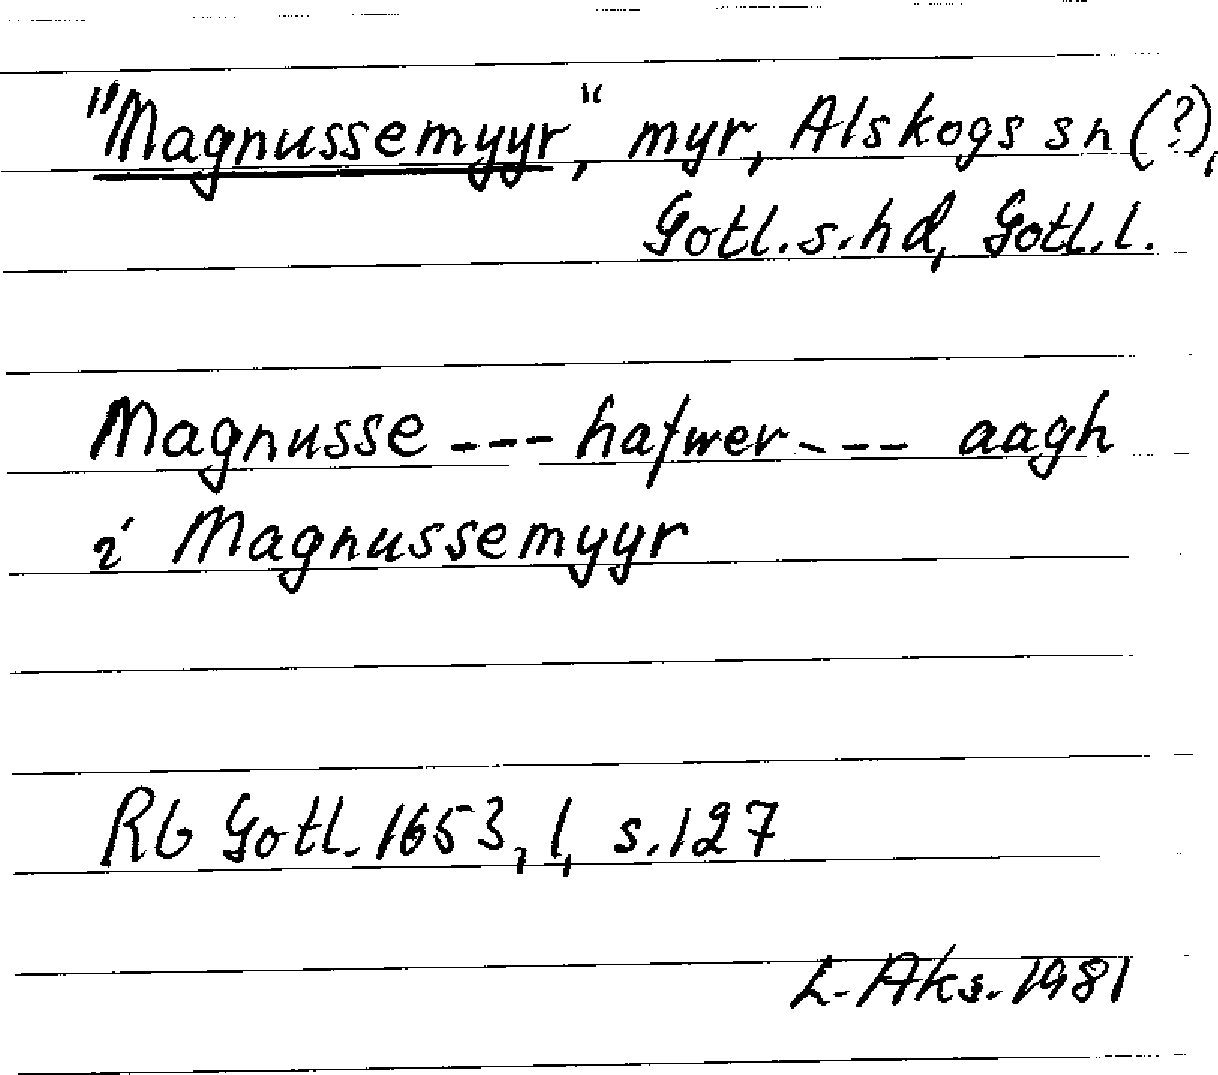 "Magnussemyyr," myr, Alskogs sn (?),
Gotl. s. hd, Gotl. l.
Magnusse --- hafwer --- aagh
i Magnussemyyr
Rb Gotl. 1653, 1, s. 127
L. Aks. 1981